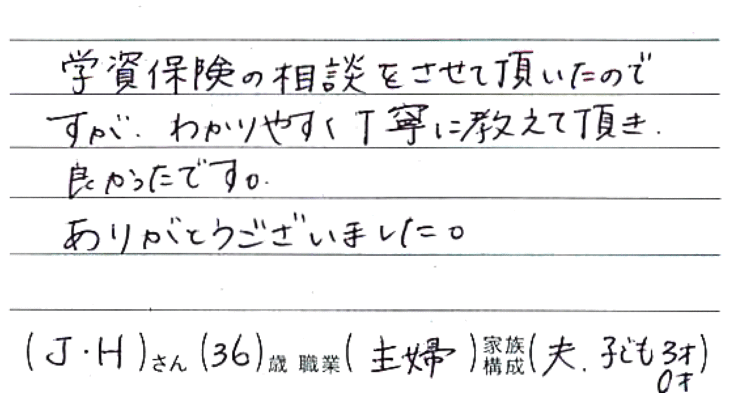 学資保険の相談をさせて頂いたので
すが、わかりやすく丁寧に教えて頂き、
良かったです。
ありがとうございました。
(J・H)さん(36)歳 職業(主婦)家族構成(夫、子ども3才
0才)